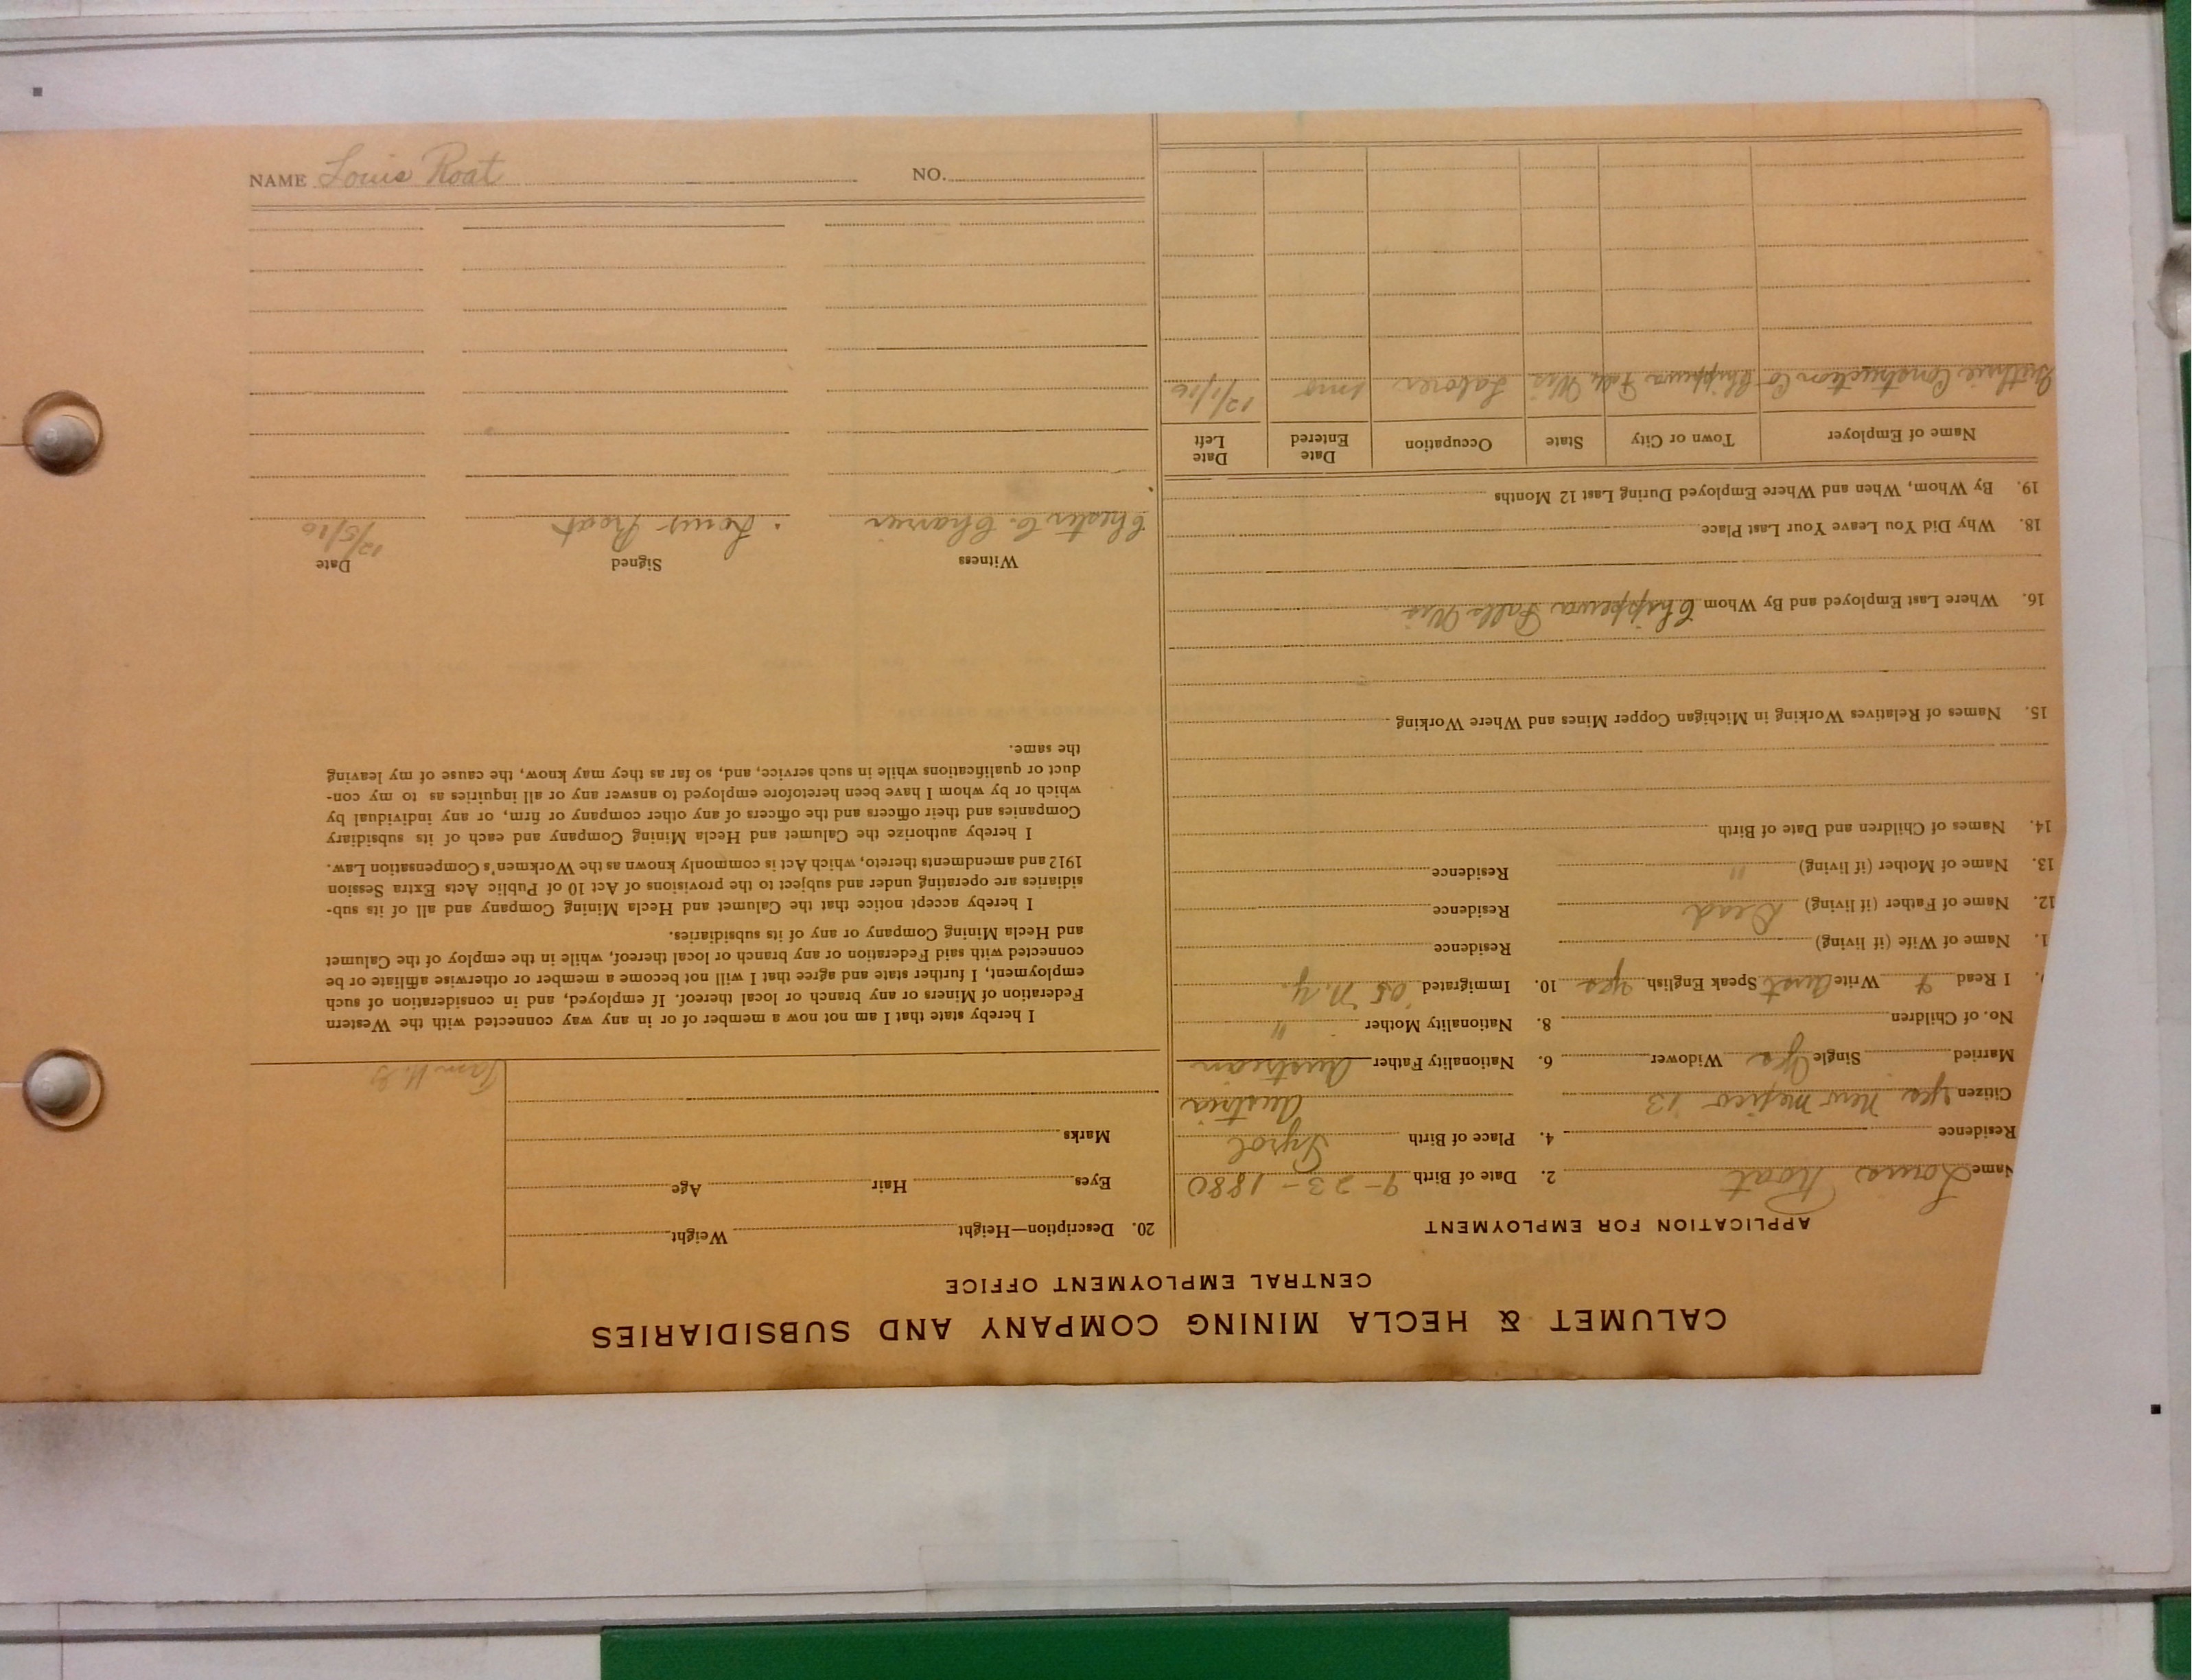 CALUMET & HECLA MINING COMPANY AND SUBSIDIARIES
CENTRAL EMPLOYMENT OFFICE
APPLICATION FOR EMPLOYMENT
Name Louis Roat 2. Date of Birth 9-23-1880
Residence 4. Place of Birth Tyrol
Austria
Citizen Yes New Mexico '13
Married Single Yes Widower 6. Nationality Father Austrian
No. of Children 8. Nationality Mother "
9. I Read & Write Aust Speak English Yes 10. Immigrated '05 N.Y.
1. Name of Wife (if living) Residence
12. Name of Father (if living) Dead Residence
13. Name of Mother (if living) " Residence
14. Names of Children and Date of Birth
15. Names of Relatives Working in Michigan Copper Mines and Where Working
16. Where Last Employed and By Whom Chippewa Falls Wis
18. Why Did You Leave Your Last Place
19. By Whom, When and Where Employed During Last 12 Months
Name of Employer Town or City State Occupation Date Entered Date Left
Guthrie Construction Co Chippewa Falls Wis Laborer 1 mo 12/1/16
20. Description—Height Weight
Eyes Hair Age
Marks
I hereby state that I am not now a member of or in any way connected with the Western
Federation of Miners or any branch or local thereof. If employed, and in consideration of such
employment, I further state and agree that I will not become a member or otherwise affiliate or be
connected with said Federation or any branch or local thereof, while in the employ of the Calumet
and Hecla Mining Company or any of its subsidiaries.
I hereby accept notice that the Calumet and Hecla Mining Company and all of its sub-
sidiaries are operating under and subject to the provisions of Act 10 of Public Acts Extra Session
1912 and amendments thereto, which Act is commonly known as the Workmen's Compensation Law.
I hereby authorize the Calumet and Hecla Mining Company and each of its subsidiary
Companies and their officers and the officers of any other company or firm, or any individual by
which or by whom I have been heretofore employed to answer any or all inquiries as to my con-
duct or qualifications while in such service, and, so far as they may know, the cause of my leaving
the same.
Witness Signed Date
Chester C. Louis Roat 12/5/16
NAME Louis Roat NO.